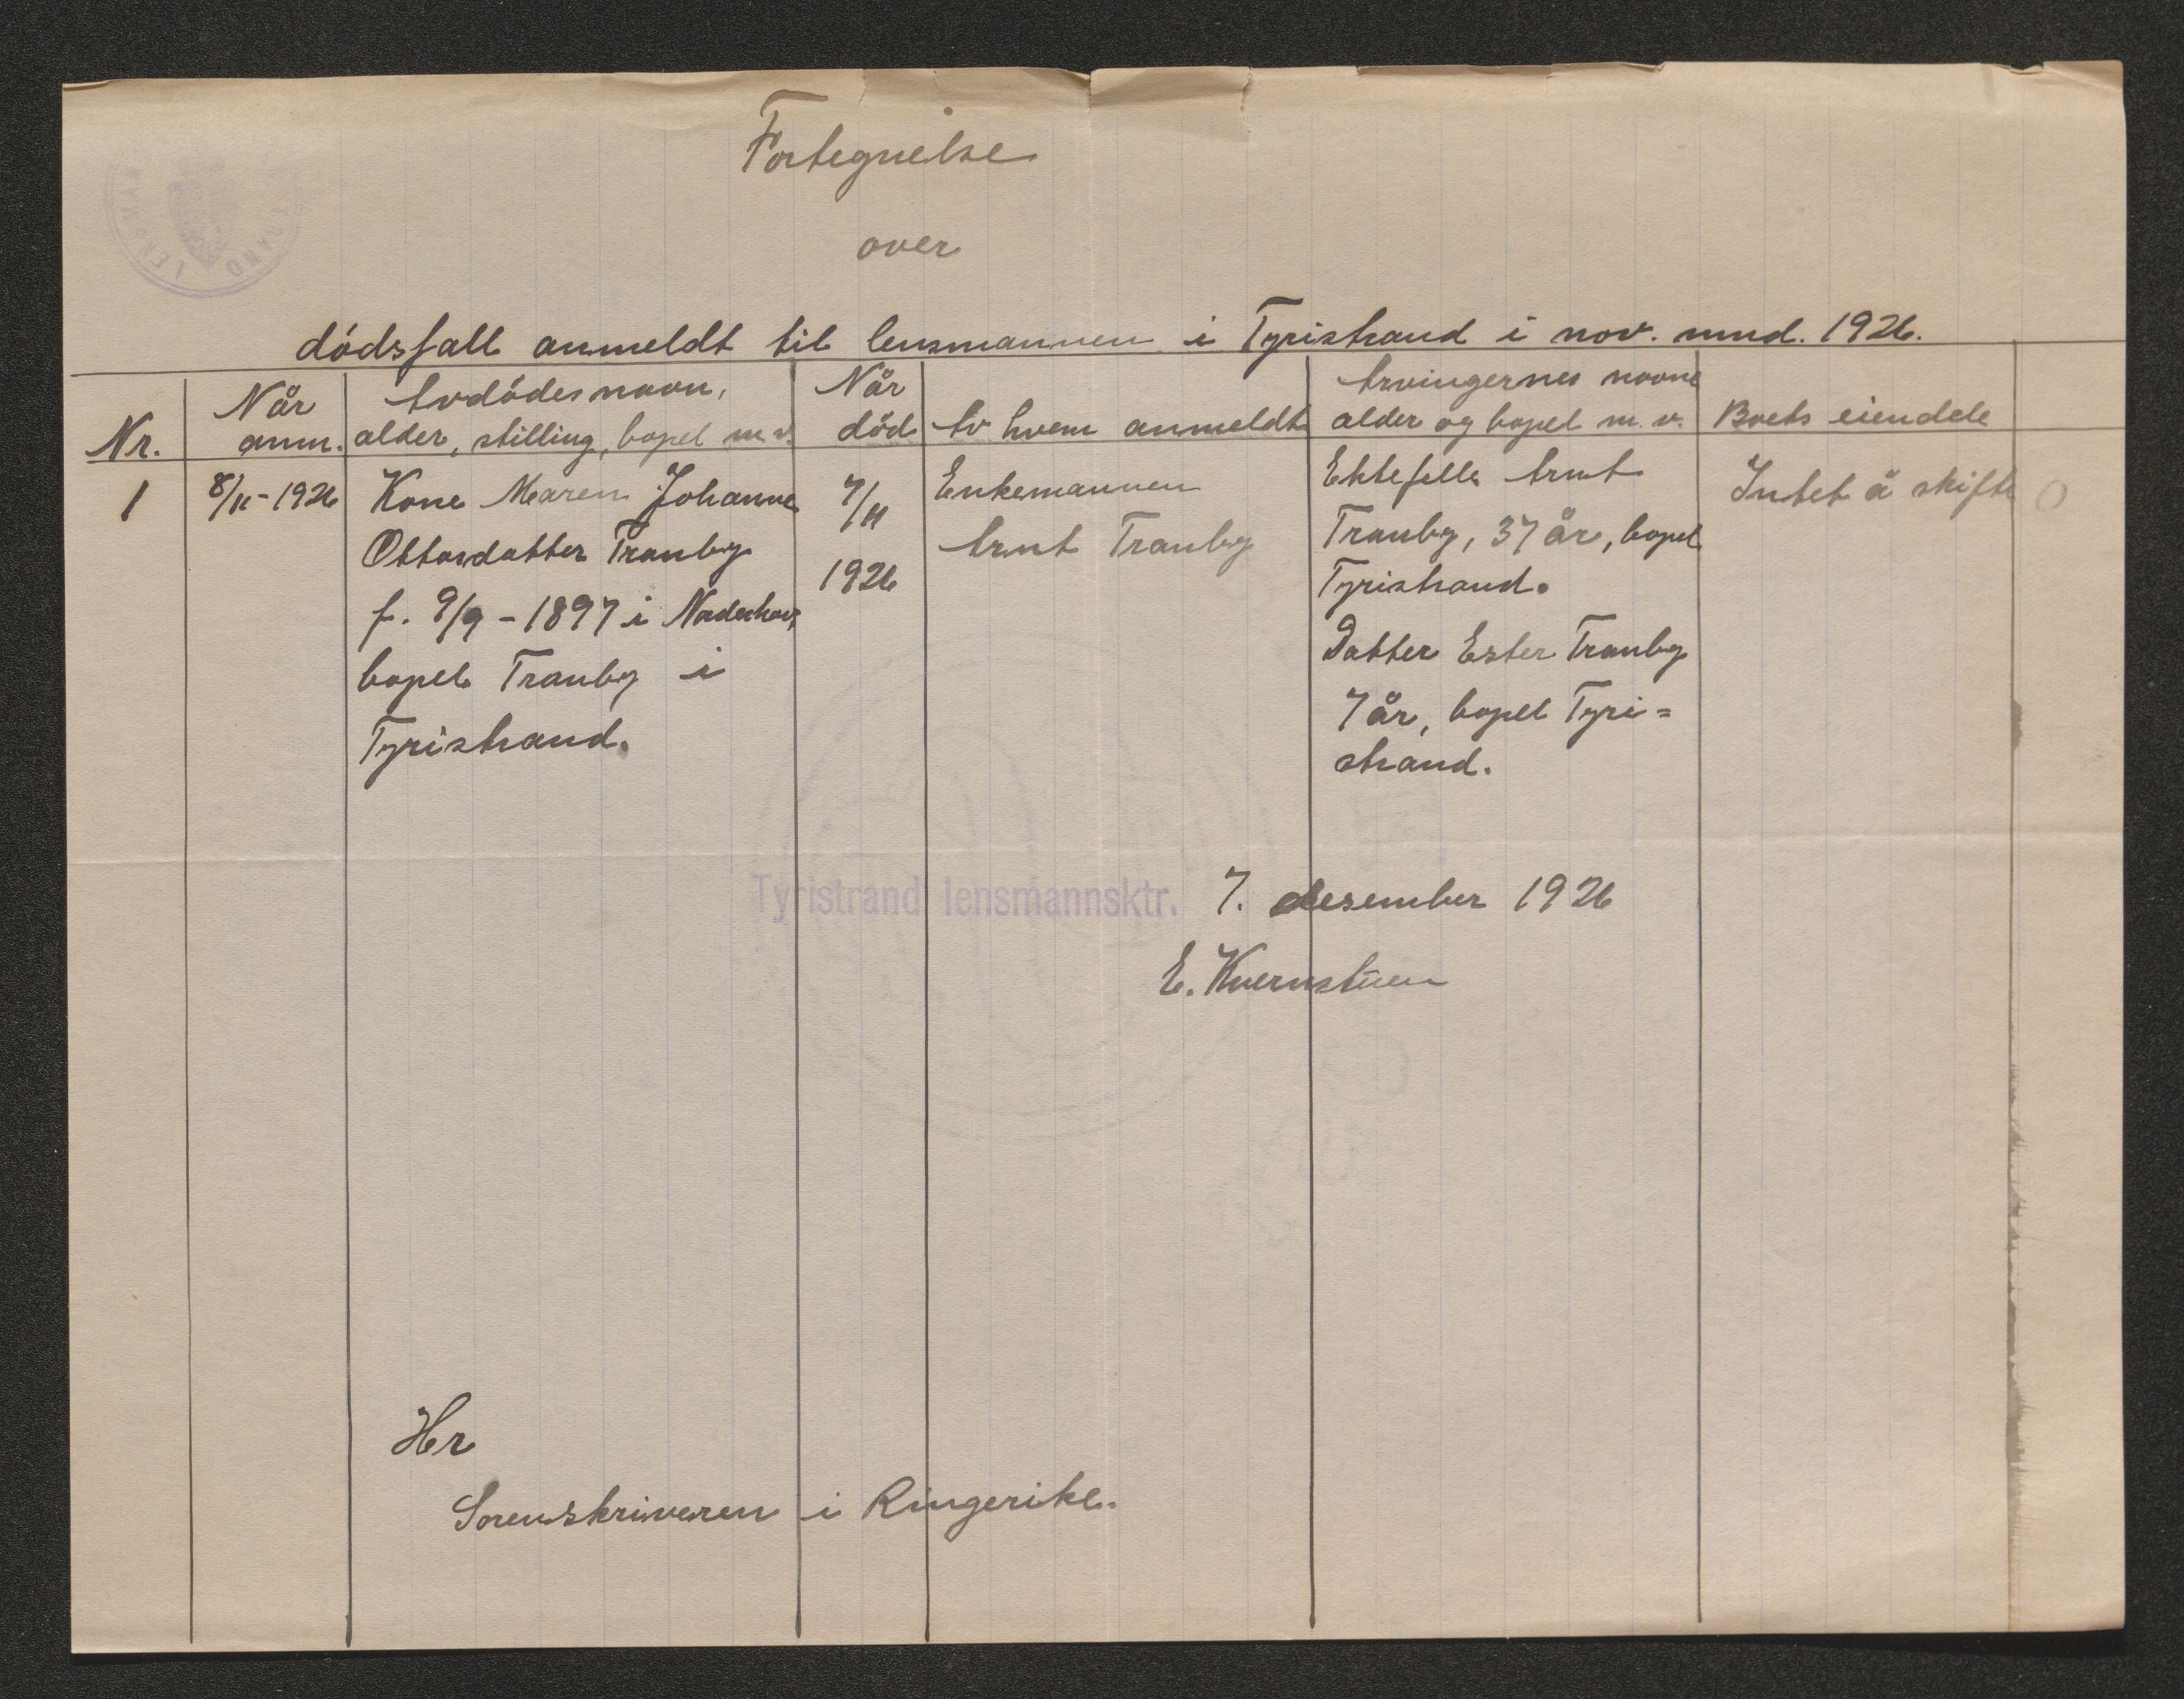 Fortegnelse
over
dødsfall anmeldt til lensmannen i Tyristrand i nov. mnd. 1926.
Nr.
Når
anm.
Avdødes navn,
alder, stilling, bopel m.v.
Når
død
Av hvem anmeldt
Arvingernes navne
alder og bopel m.v.
Boets eiendele
1
8/11-1926
Kone Maren Johanne
Ottosdatter Tranby
f. 9/9-1897 i Norderhov,
bopel Tranby i
Tyristrand.
7/11
1926
Enkemannen
Arnt Tranby
Ektefelle Arnt
Tranby, 37 år, bopel
Tyristrand.
Datter Ester Tranby
7 år, bopel Tyri=
strand.
Intet å skifte
0
Tyristrand lensmannsktr. 7. desember 1926
E. Kvernstuen
Hr
Sorenskriveren i Ringerike.